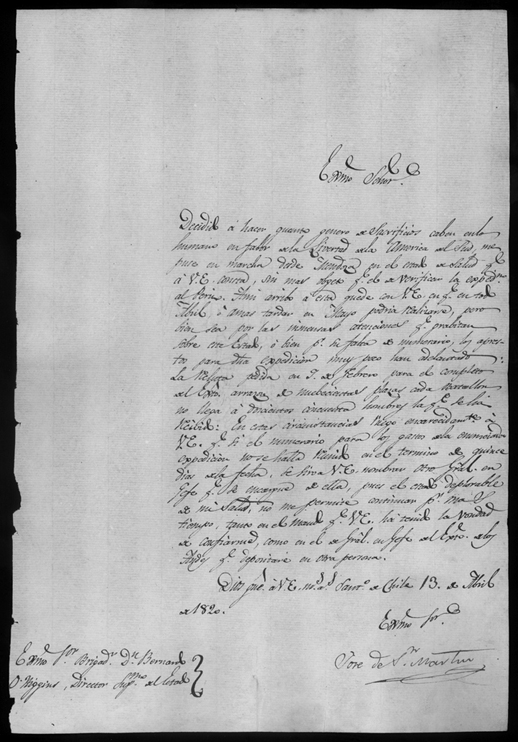 Exmo Señor.
Decidido á hacer quanto genero de Sacrificios caben en lo
humano en favor de la Livertad de la America del Sud, me
puse en marcha desde Mendoza en el estado de salud q.e
á V.E. consta, sin mas objeto q.e el de verificar la expedon.
al Perú. A mi arribo á esta quedé con V.E. en q.e en todo
Abril ó á mas tardar en Mayo podria realizarse, pero
bien sea por las inmensas atenciones q.e
sobre este Estado, ó bien p.r la falta de numerario, los apres-
tos para dha expedicion muy poco han adelantado:
la Recluta pedida en de Febrero para el completo
del Exto. á razon de novecientas plazas cada Batallon
no llega á doscientos cincuenta hombres la q.e se ha
recibido: En estas circunstancias ruego encarecidamte. á
V.E. q.e si el numerario para los gastos de la enunciada
expedicion no se halla reunido en el termino de quince
dias de la fecha, se sirva V.E. nombrar otro Gral. en
Gefe q.e se encargue de ella, pues el estado deplorable
de mi Salud, no me permite continuar p.r mas
tiempo, tanto en el mando q.e V.E. ha tenido la vondad
de confiarme, como en el de Gral. en Gefe del Exto. de los
Andes q.e depositaré en otra persona.
Dios gue. á V.E. m.s a.s Santo. de Chile 13 de Abril
de 1820.
Exmo Sor.
Jose de Sn. Martin
Exmo Sor. Brigadr. Dn. Bernardo
O'Higgins, Director Sup.mo del Estado